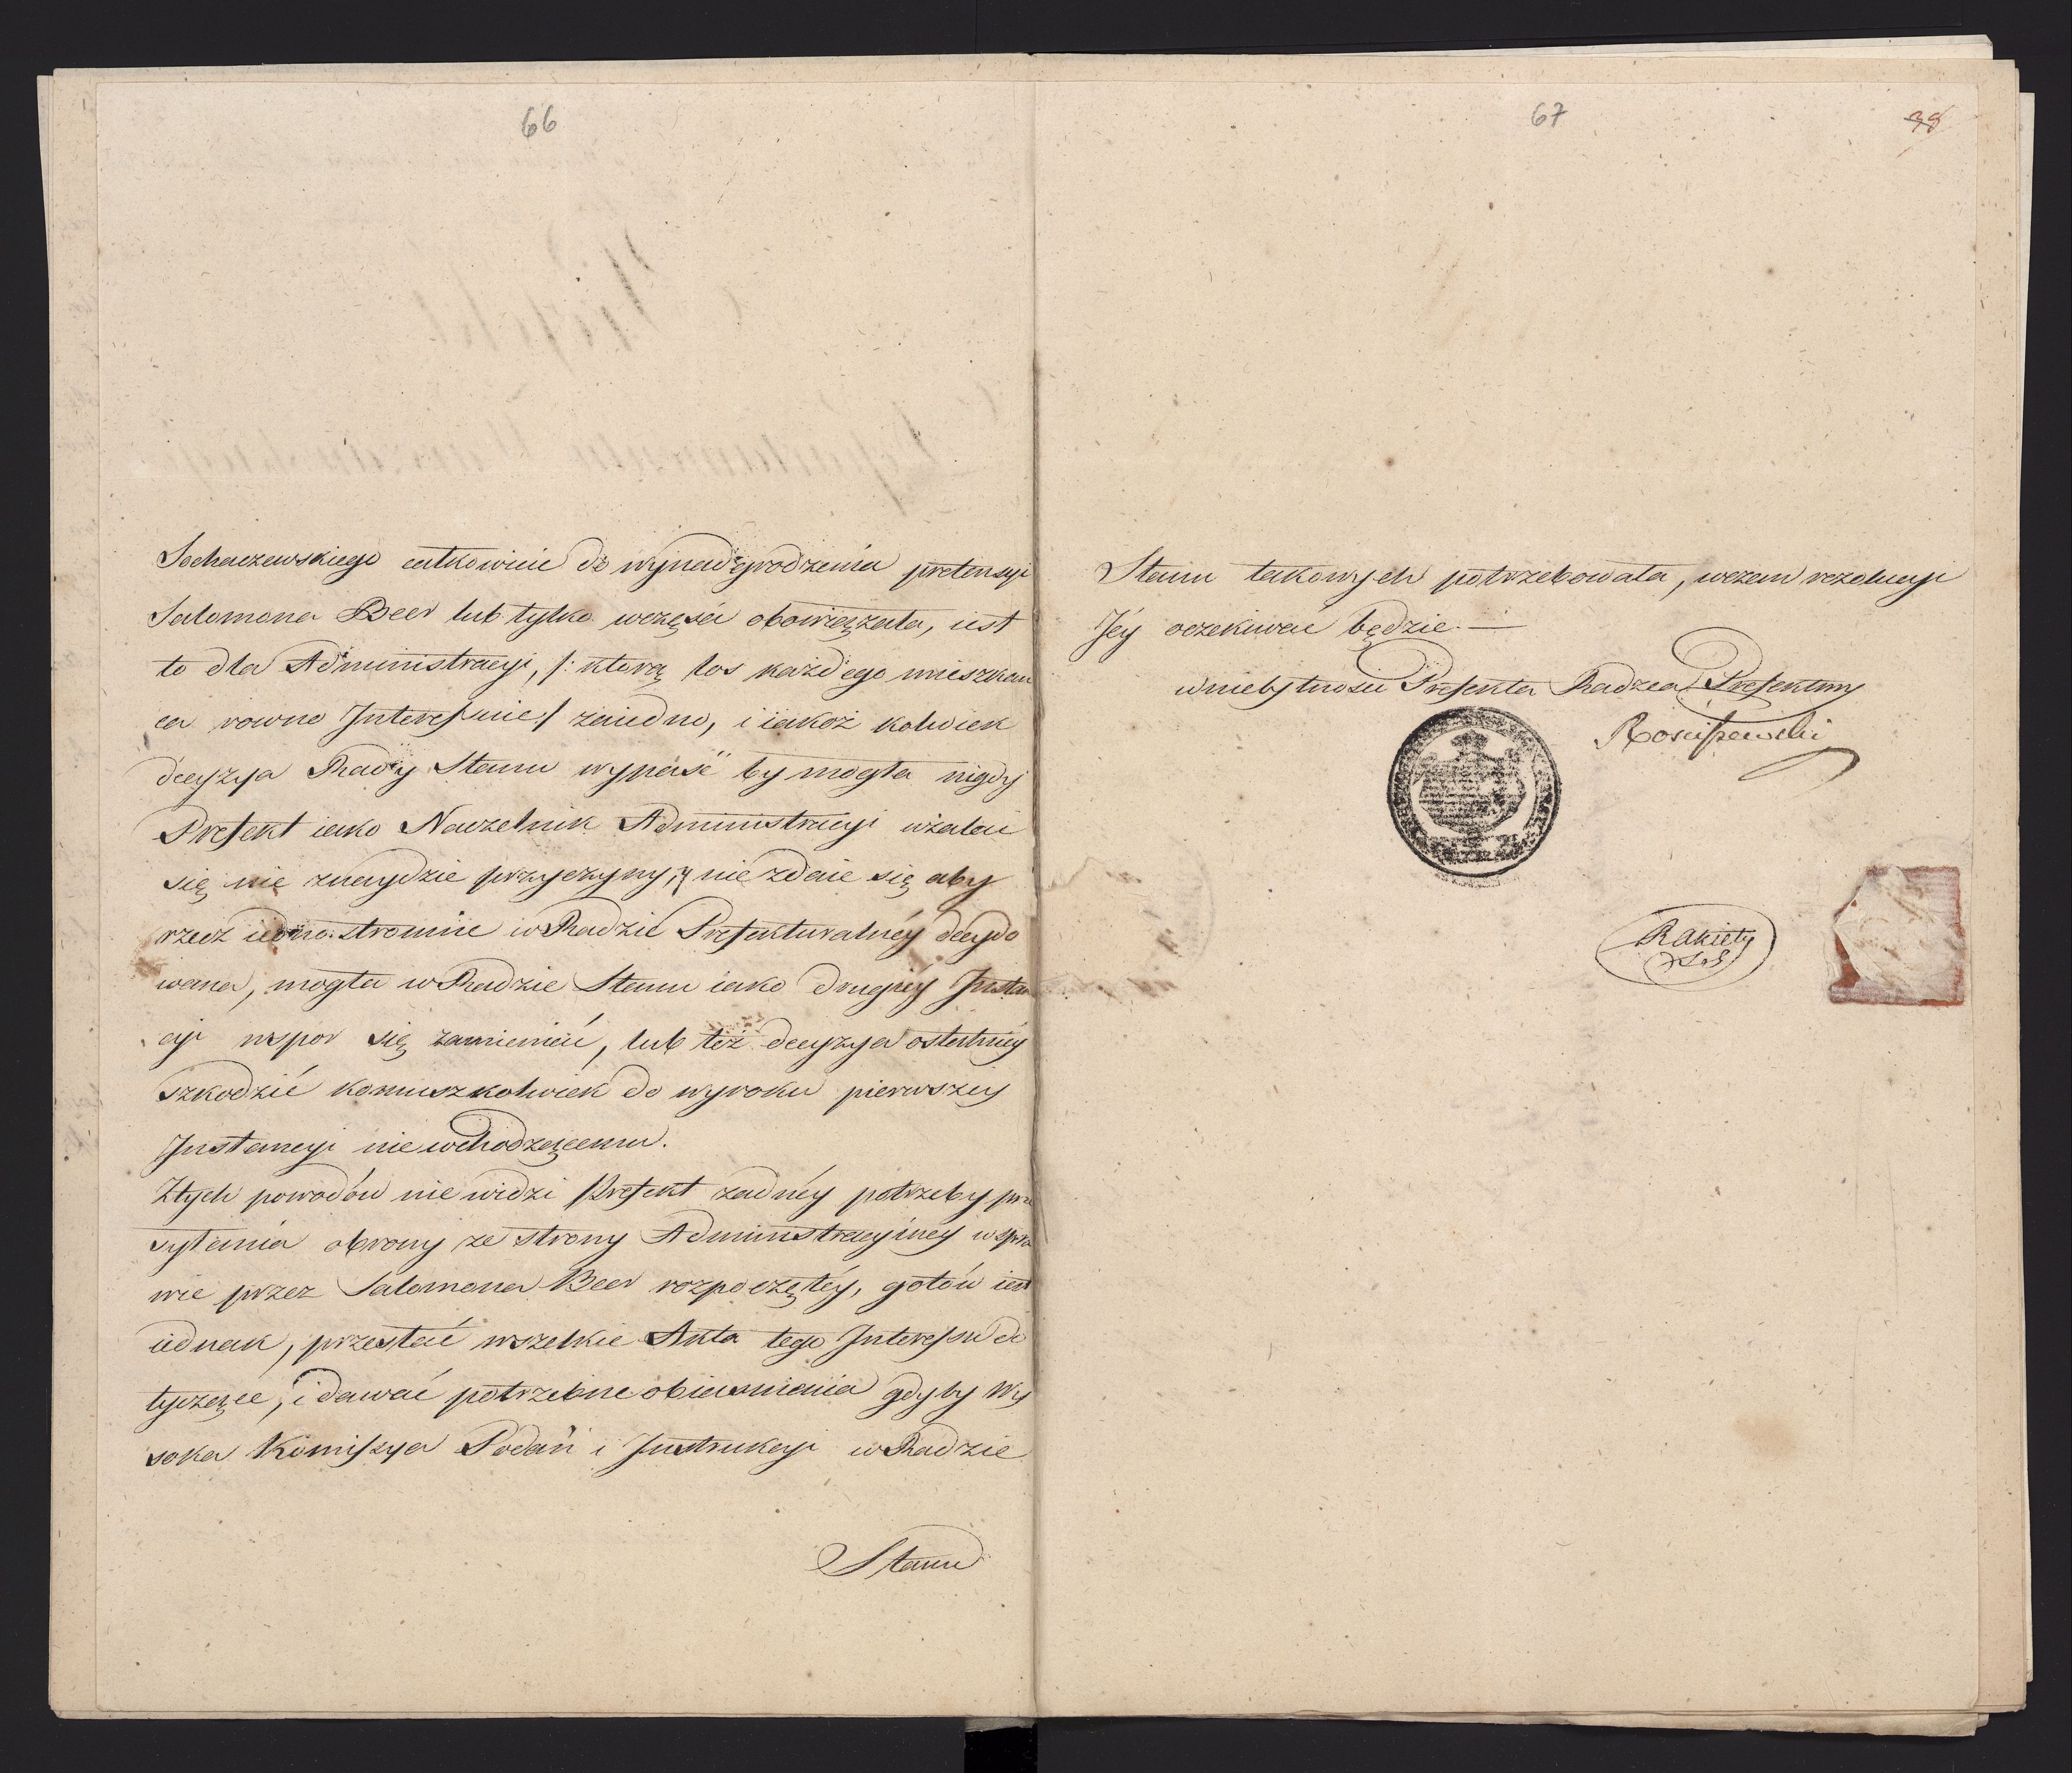 66
Sochaczewskiego całkowicie do wynadgrodzenia pretensyi
Salomona Beer lub tylko wczęsci obowięzała, iest
to dla Administracyi, /: ktorą los każdego mieszkan
ca rowno Interessuie :/ zaiedno, i iakoż kolwiek
decyzya Rady Stanu wypaść by mogła nigdy
Prefekt iako Naczelnik Administracyi użalać
się nie znaydzie przyczyny, y nie zdaie się aby
rzecz iedno stronnie w Radzie Prefekturalnéy decydo
wana, mogła w Radzie Stanu iako drugiéy Instan
cyi wspor się zamienić, lub też decyzya ostatniéy
szkodzić komuszkolwiek do wyroku pierwszey
Instancyi nie wchodzącemu.
Ztych powodów nie widzi Prefekt zadnéy potrzeby prze
syłania obrony ze strony Administracyiney w spra
wie przez Salomona Beer rozpoczętéy, gotów iest
iednak, przesłać wszelkie Akta tego Interessu do
tyczące, i dawać potrzebne obiasnienia gdyby Wy
soka Kommissya Podań i Instrukcyi w Radzie
Stanu
67
38
Stanu takowych potrzebowała, wczem rezolucyi
Jéy oczekiwać będzie. —
w niebytnosci Prefekta Radzca Prefektury
Rosciszewski
Rakiety